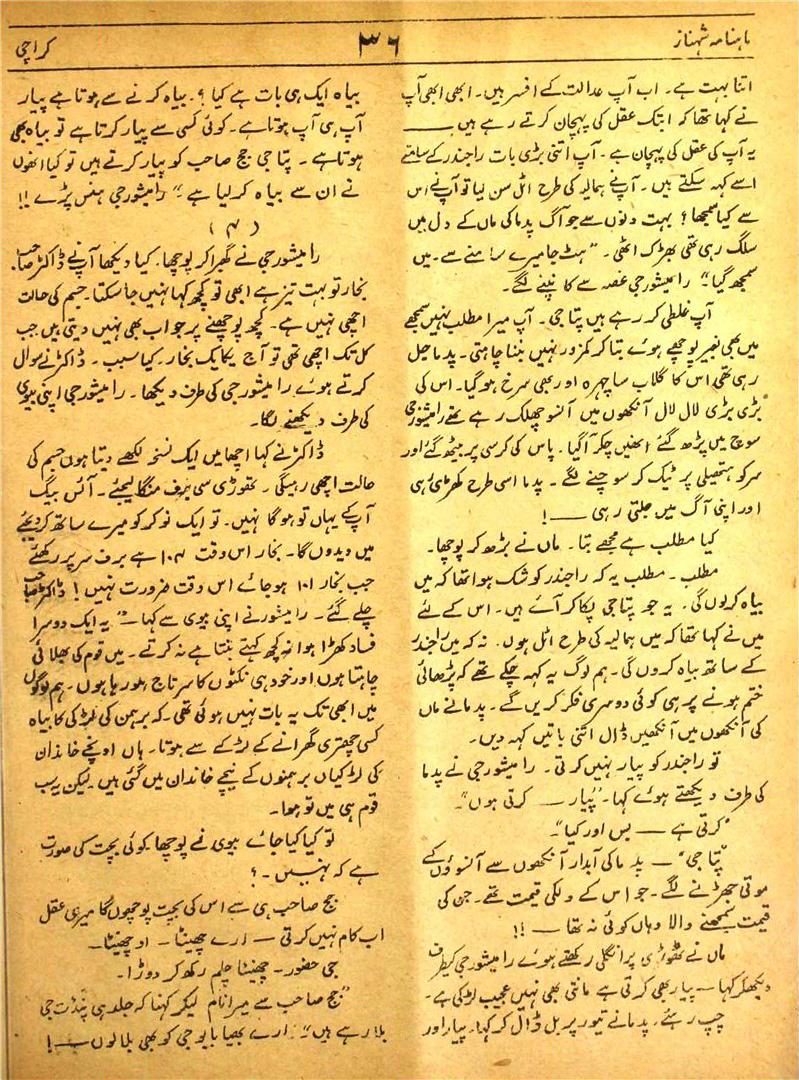 ماہنامہ شہناز
۳۶
کراچی
اتنا بہت ہے۔ اب آپ عدالت کے افسر ہیں۔ ابھی ابھی آپ
نے کہا تھا کہ ابتک عقل کی پہچان کرتے رہے ہیں ——
یہ آپ کی عقل کی پہچان ہے۔ آپ اتنی بڑی بات راجندر کے سامنے
اسے کہہ سکتے ہیں۔ آپنے ہمالیہ کی طرح اٹل سن لیا تو آپنے اس
سے کیا سمجھا؟ بہت دنوں سے جو آگ پدما کی ماں کے دل میں
سلگ رہی تھی بھڑک اٹھی۔ "ہٹ جا میرے سامنے سے۔ میں
سمجھ گیا" رامیشور جی غصہ سے کانپنے لگے۔
آپ غلطی کر رہے ہیں پتا جی۔ آپ میرا مطلب نہیں سمجھے
میں بھی بغیر پوچھے ہوئے بتا کر کمزور نہیں بننا چاہتی۔ پدما جل
رہی تھی اس کا گلاب سا چہرہ اور بھی سرخ ہو گیا۔ اس کی
بڑی بڑی لال لال آنکھوں میں آنسو چھلک رہے تھے رامیشور جی
سوچ میں پڑھ گئے انھیں چکر آ گیا۔ پاس کی کرسی پر بیٹھ گئے اور
سر کو ہتھیلی پر ٹیک کر سوچنے لگے۔ پدما اسی طرح کھڑی رہی
اور اپنی آگ میں جلتی رہی —— !
کیا مطلب ہے مجھے بتا۔ ماں نے بڑھ کر پوچھا۔
مطلب۔ مطلب یہ کہ راجندر کو شک ہوا تھا کہ میں
بیاہ کر لوں گی۔ یہ جو پتا جی پکا کر آئے ہیں۔ اس کے لئے
میں نے کہا تھا کہ میں ہمالیہ کی طرح اٹل ہوں۔ نہ کہ میں راجندر
کے ساتھ بیاہ کروں گی۔ ہم لوگ یہ کہہ چکے تھے کہ پڑھائی
ختم ہونے پر ہی کوئی دوسری فکر کریں گے۔ پدما نے ماں
کی آنکھوں میں آنکھیں ڈال اتنی باتیں کہہ دیں۔
تو راجندر کو پیار نہیں کرتی۔ رامیشور جی نے پدما
کی طرف دیکھتے ہوئے کہا۔ "پیار —— کرتی ہوں"۔
"کرتی ہے —— بس اور کیا"۔
"پتا جی" — پدما کی آبدار آنکھوں سے آنسوؤں کے
موتی جھڑنے لگے۔ جو اس کے دل کی قیمت تھے۔ جن کی
قیمت سمجھنے والا وہاں کوئی نہ تھا —— !!
ماں نے ٹھوڑی پر انگلی رکھتے ہوئے رامیشور جی کیطرف
دیکھکر کہا — پیار بھی کرتی ہے مانتی بھی نہیں عجیب لڑکی ہے۔
چپ رہئے۔ پدما نے تیور پر بل ڈال کر کہا۔ پیار اور
بیاہ ایک ہی بات ہے کیا؟۔ بیاہ کرنے سے ہوتا ہے پیار
آپ ہی آپ ہوتا ہے۔ کوئی کسی سے پیار کرتا ہے تو بیاہ بھی
ہوتا ہے۔ پتا جی جج صاحب کو پیار کرتے ہیں تو کیا انھوں
نے ان سے بیاہ کر لیا ہے" رامیشور جی ہنس پڑے !!
(۴)
رامیشور جی نے گھبرا کر پوچھا۔ کیا دیکھا آپنے ڈاکٹر صاحب۔
بخار تو بہت تیز ہے ابھی تو کچھ کہا نہیں جا سکتا۔ جسم کی حالت
اچھی نہیں ہے۔ کچھ پوچھنے پر جواب بھی نہیں دیتی ہیں جب
کل تک اچھی تھی تو آج یکایک بخار۔ کیا سبب۔ ڈاکٹر نے سوال
کرتے ہوئے رامیشور جی کی طرف دیکھا۔ رامیشور جی اپنی بیوی
کی طرف دیکھنے لگا۔
ڈاکٹر نے کہا اچھا میں ایک نسخہ لکھے دیتا ہوں جسم کی
حالت اچھی رہیگی۔ تھوڑی سی برف منگا لیجئے۔ آئس بیگ
آپکے یہاں تو ہو گا نہیں۔ تو ایک نوکر کو میرے ساتھ کر دیجئے
میں دیدوں گا۔ بخار اس وقت ۱۰۴ ہے برف سر پر رکھئے
جب بخار ۱۰۱ ہو جائے اس وقت ضرورت نہیں! ڈاکٹر صاحب
چلے گئے۔ رامیشور نے اپنی بیوی سے کہا —" یہ ایک دوسرا
فساد کھڑا ہوا نہ کچھ کہتے بنتا ہے نہ کرتے۔ میں قوم کی بھلائی
چاہتا ہوں اور خود ہی نکٹوں کا سرتاج ہو رہا ہوں۔ ہم لوگوں
میں ابھی تک یہ بات نہیں ہوئی تھی۔ کہ برہمن کی لڑکی کا بیاہ
کسی چھتری گھرانے کے لڑکے سے ہوتا۔ ہاں اونچے خاندان
کی لڑکیاں برہمنوں کے نیچے خاندان میں گئی ہیں۔ لیکن یہ سب
قوم ہی میں تو ہوا۔
تو کیا کیا جائے بیوی نے پوچھا۔ کوئی بچت کی صورت
ہے کہ نہیں۔؟
جج صاحب ہی سے اس کی بچت پوچھوں گا میری عقل
اب کام نہیں کرتی — ارے چھینٹا — او چھینٹا —
جی حضور۔ چھینٹا چلم رکھ کر دوڑا۔
"جج صاحب سے میرا نام لیکر کہنا کہ جلد ہی پنڈت جی
بلا رہے ہیں"۔ ارے بھیا بابو جی کو بھی بلا لوں — !